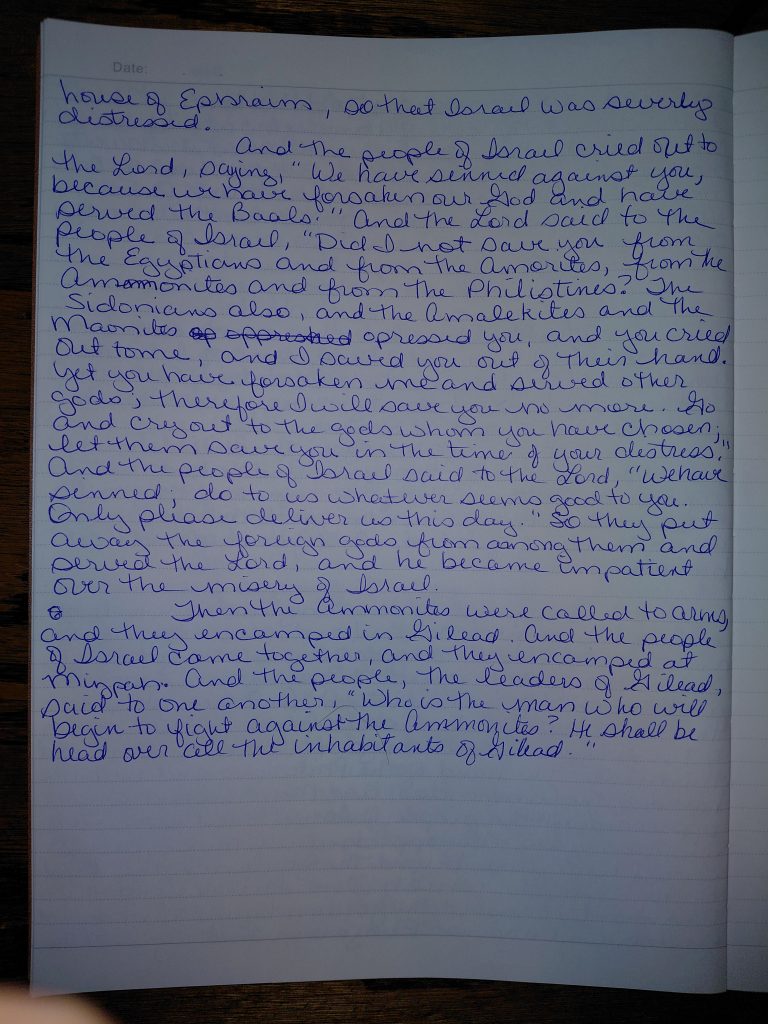 Date:
house of Ephraim, so that Israel was severly
distressed.
And the people of Israel cried out to
the Lord, saying, "We have sinned against you,
because we have forsaken our God and have
served the Baals." And the Lord said to the
people of Israel, "Did I not save you from
the Egyptians and from the Amorites, from the
Ammonites and from the Philistines? The
Sidonians also, and the Amalekites and the
Maonites op oppreshed opressed you, and you cried
out to me, and I saved you out of their hand.
Yet you have forsaken me and served other
gods; therefore I will save you no more. Go
and cry out to the gods whom you have chosen;
let them save you in the time of your distress."
And the people of Israel said to the Lord, "We have
sinned; do to us whatever seems good to you.
Only please deliver us this day." So they put
away the foreign gods from among them and
served the Lord, and he became impatient
over the misery of Israel.
Then the Ammonites were called to arms,
and they encamped in Gilead. And the people
of Israel came together, and they encamped at
Mizpah. And the people, the leaders of Gilead,
said to one another, "Who is the man who will
begin to fight against the Ammonites? He shall be
head over all the inhabitants of Gilead."